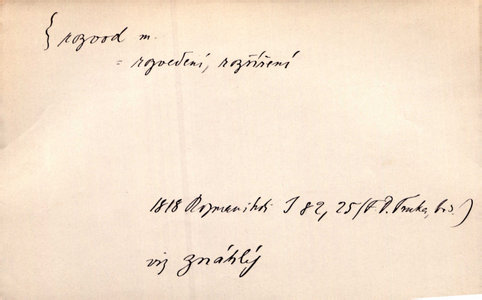 { rozvod m.
= rozvedení, rozšíření
1818 Rozmanitosti I 82, 25 (F. P. Truka, bs.)
viz znáhlý